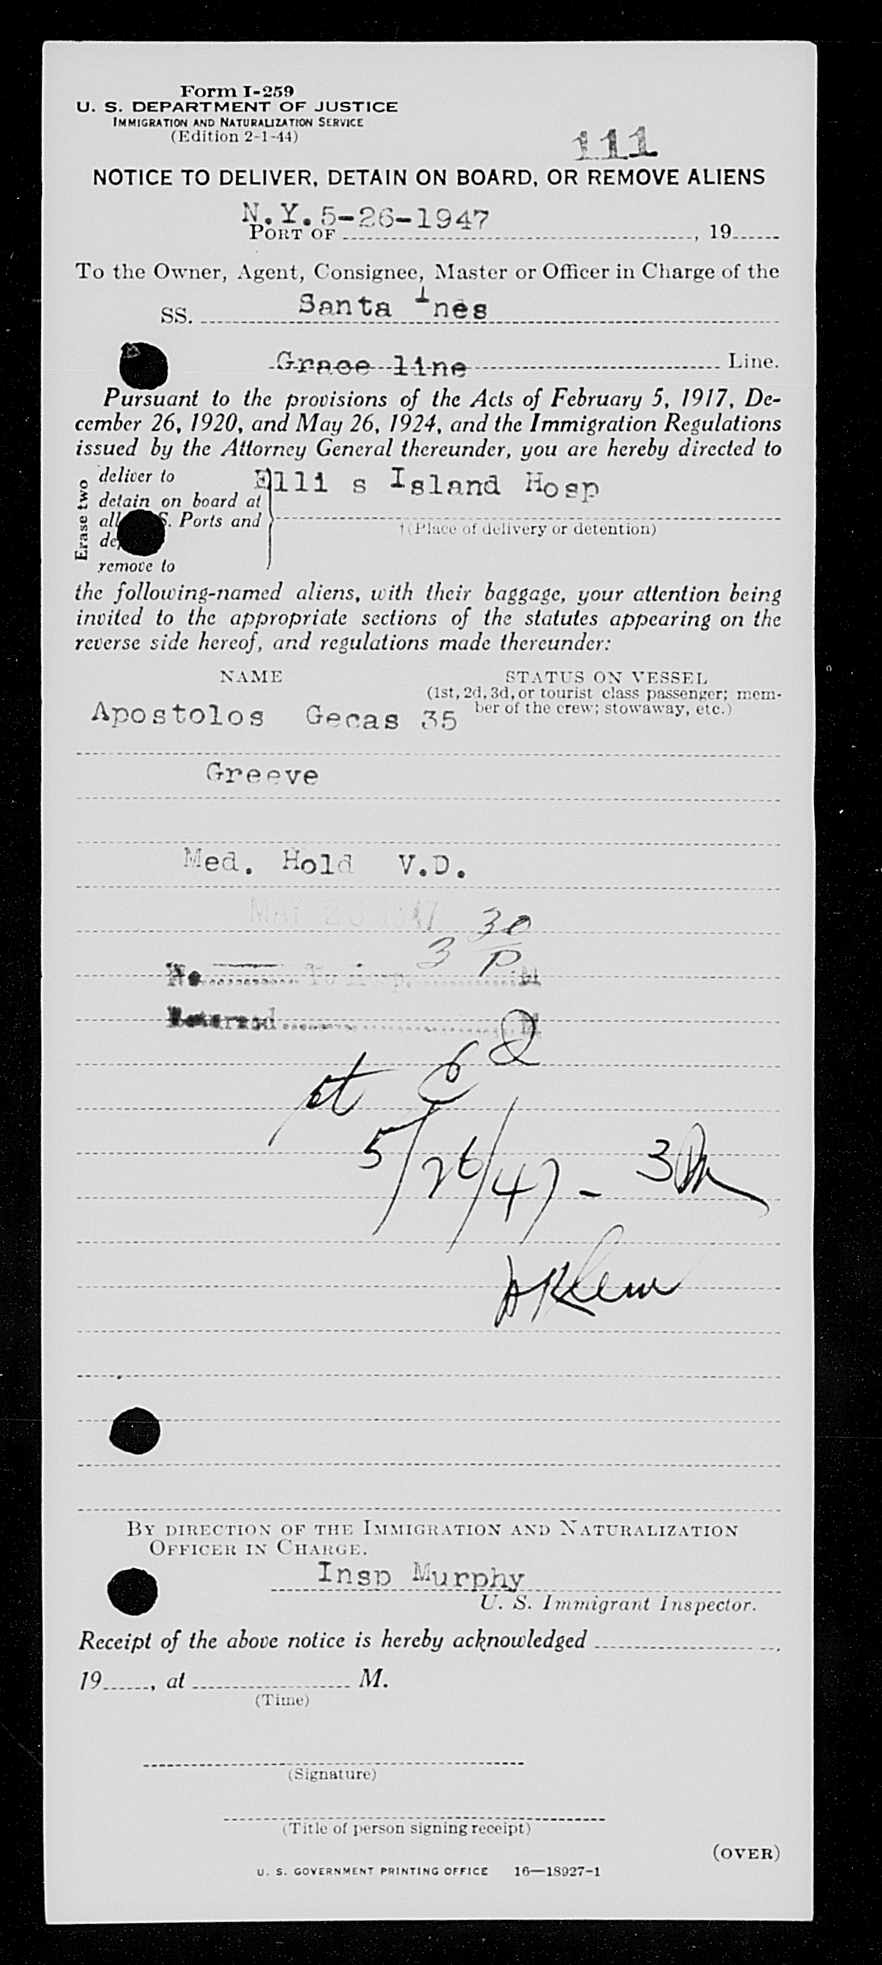 Form I-259
U. S. DEPARTMENT OF JUSTICE
IMMIGRATION AND NATURALIZATION SERVICE
(Edition 2-1-44)
111
NOTICE TO DELIVER, DETAIN ON BOARD, OR REMOVE ALIENS
N.Y. 5-26-1947
PORT OF , 19
To the Owner, Agent, Consignee, Master or Officer in Charge of the
SS. Santa Ines
Grace line Line.
Pursuant to the provisions of the Acts of February 5, 1917, De-
cember 26, 1920, and May 26, 1924, and the Immigration Regulations
issued by the Attorney General thereunder, you are hereby directed to
Erase two
deliver to Elli s Island Hosp
detain on board at
all S. Ports and
†(Place of delivery or detention)
remove to
the following-named aliens, with their baggage, your attention being
invited to the appropriate sections of the statutes appearing on the
reverse side hereof, and regulations made thereunder:
NAME STATUS ON VESSEL
(1st, 2d, 3d, or tourist class passenger; mem-
ber of the crew; stowaway, etc.)
Apostolos Gecas 35
Greeve
Med. Hold V.D.
3 30
P M
No
Returned M
5/26/47 - 3 PM
BY DIRECTION OF THE IMMIGRATION AND NATURALIZATION
OFFICER IN CHARGE.
Insp Murphy
U. S. Immigrant Inspector.
Receipt of the above notice is hereby acknowledged
19 , at M.
(Time)
(Signature)
(Title of person signing receipt)
(OVER)
U. S. GOVERNMENT PRINTING OFFICE 16—18927-1